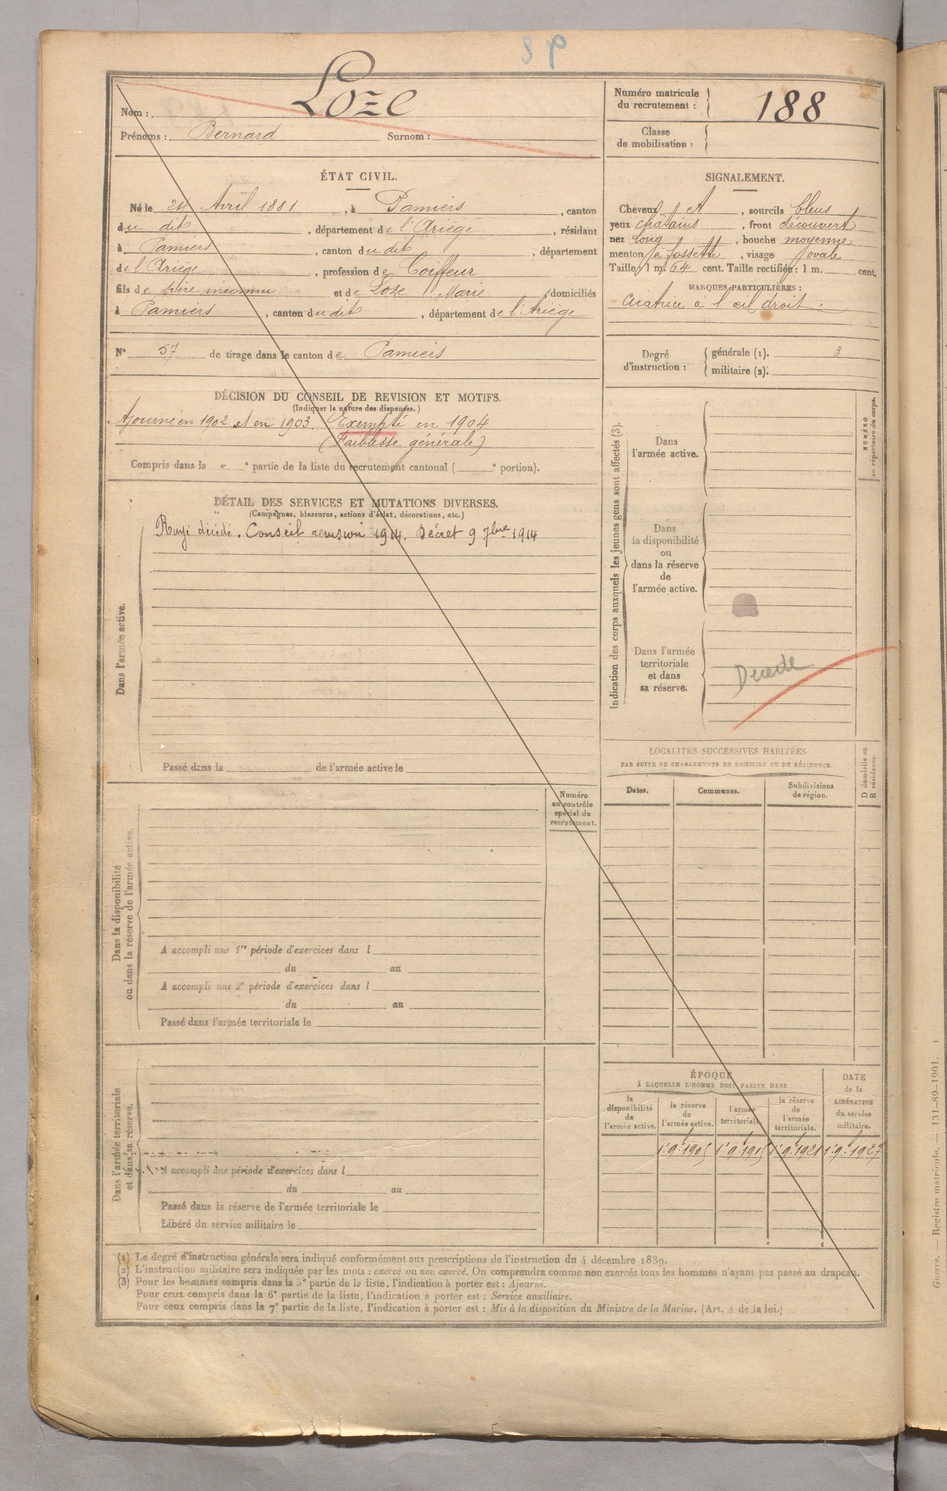 89
Nom : Loze
Prénoms : Bernard Surnom :
Numéro matricule du recrutement : 188
Classe de mobilisation :
ÉTAT CIVIL.
Né le 24 Avril 1881, à Pamiers, canton
du dit, département de l'Ariège, résidant
à Pamiers, canton du dit, département
de l'Ariège, profession de Coiffeur
fils de père inconnu et de Loze Marie domiciliés
à Pamiers, canton du dit, département de l'Ariège
N° 57 de tirage dans le canton de Pamiers
SIGNALEMENT.
Cheveux et, sourcils bleus
yeux chatains, front découvert
nez long, bouche moyenne
menton à fossette, visage ovale
Taille : 1 m. 64 cent. Taille rectifiée : 1 m. cent.
MARQUES PARTICULIÈRES :
à l'œil droit.
Degré d'instruction : générale (1). 3
militaire (2).
DÉCISION DU CONSEIL DE REVISION ET MOTIFS.
(Indiquer la nature des dispenses.)
Ajourné en 1902 et en 1903. Exempté en 1904
(Faiblesse générale)
Compris dans la " ° partie de la liste du recrutement cantonal ( ° portion).
DÉTAIL DES SERVICES ET MUTATIONS DIVERSES.
(Campagnes, blessures, actions d'éclat, décorations, etc.)
Rayé décédé. Conseil revision 1914. Décret 9 7bre 1914
Dans l'armée active.
Passé dans la de l'armée active le
Indication des corps auxquels les jeunes gens sont affectés (3).
NUMÉRO au répertoire du corps.
Dans
l'armée active.
Dans
la disponibilité
ou
dans la réserve
de
l'armée active.
Dans l'armée
territoriale
et dans
sa réserve.
Decede
LOCALITÉS SUCCESSIVES HABITÉES
PAR SUITE DE CHANGEMENTS DE DOMICILE OU DE RÉSIDENCE
Dates. Communes. Subdivisions de région. D domicile ou R résidence.
Numéro
au contrôle
spécial du
recrutement.
Dans la disponibilité
ou dans la réserve de l'armée active.
A accompli une 1re période d'exercices dans l
du au
A accompli une 2e période d'exercices dans l
du au
Passé dans l'armée territoriale le
Dans l'armée territoriale
et dans sa réserve.
A accompli une période d'exercices dans l
du au
Passé dans la réserve de l'armée territoriale le
Libéré du service militaire le
ÉPOQUE
À LAQUELLE L'HOMME DOIT PASSER DANS
la disponibilité de l'armée active. la réserve de l'armée active. l'armée territoriale. la réserve de l'armée territoriale.
DATE de la LIBÉRATION du service militaire.
1.9.1905 1.9.1915 1.9.1921 1.9.1927
(1) Le degré d'instruction générale sera indiqué conformément aux prescriptions de l'instruction du 4 décembre 1889.
(2) L'instruction militaire sera indiquée par les mots : exercé ou non exercé. On comprendra comme non exercés tous les hommes n'ayant pas passé au drapeau.
(3) Pour les hommes compris dans la 5e partie de la liste, l'indication à porter est : Ajourné.
Pour ceux compris dans la 6e partie de la liste, l'indication à porter est : Service auxiliaire.
Pour ceux compris dans la 7e partie de la liste, l'indication à porter est : Mis à la disposition du Ministre de la Marine. (Art. 4 de la loi.)
Guerre. — Registre matricule. — 131-89-1901.